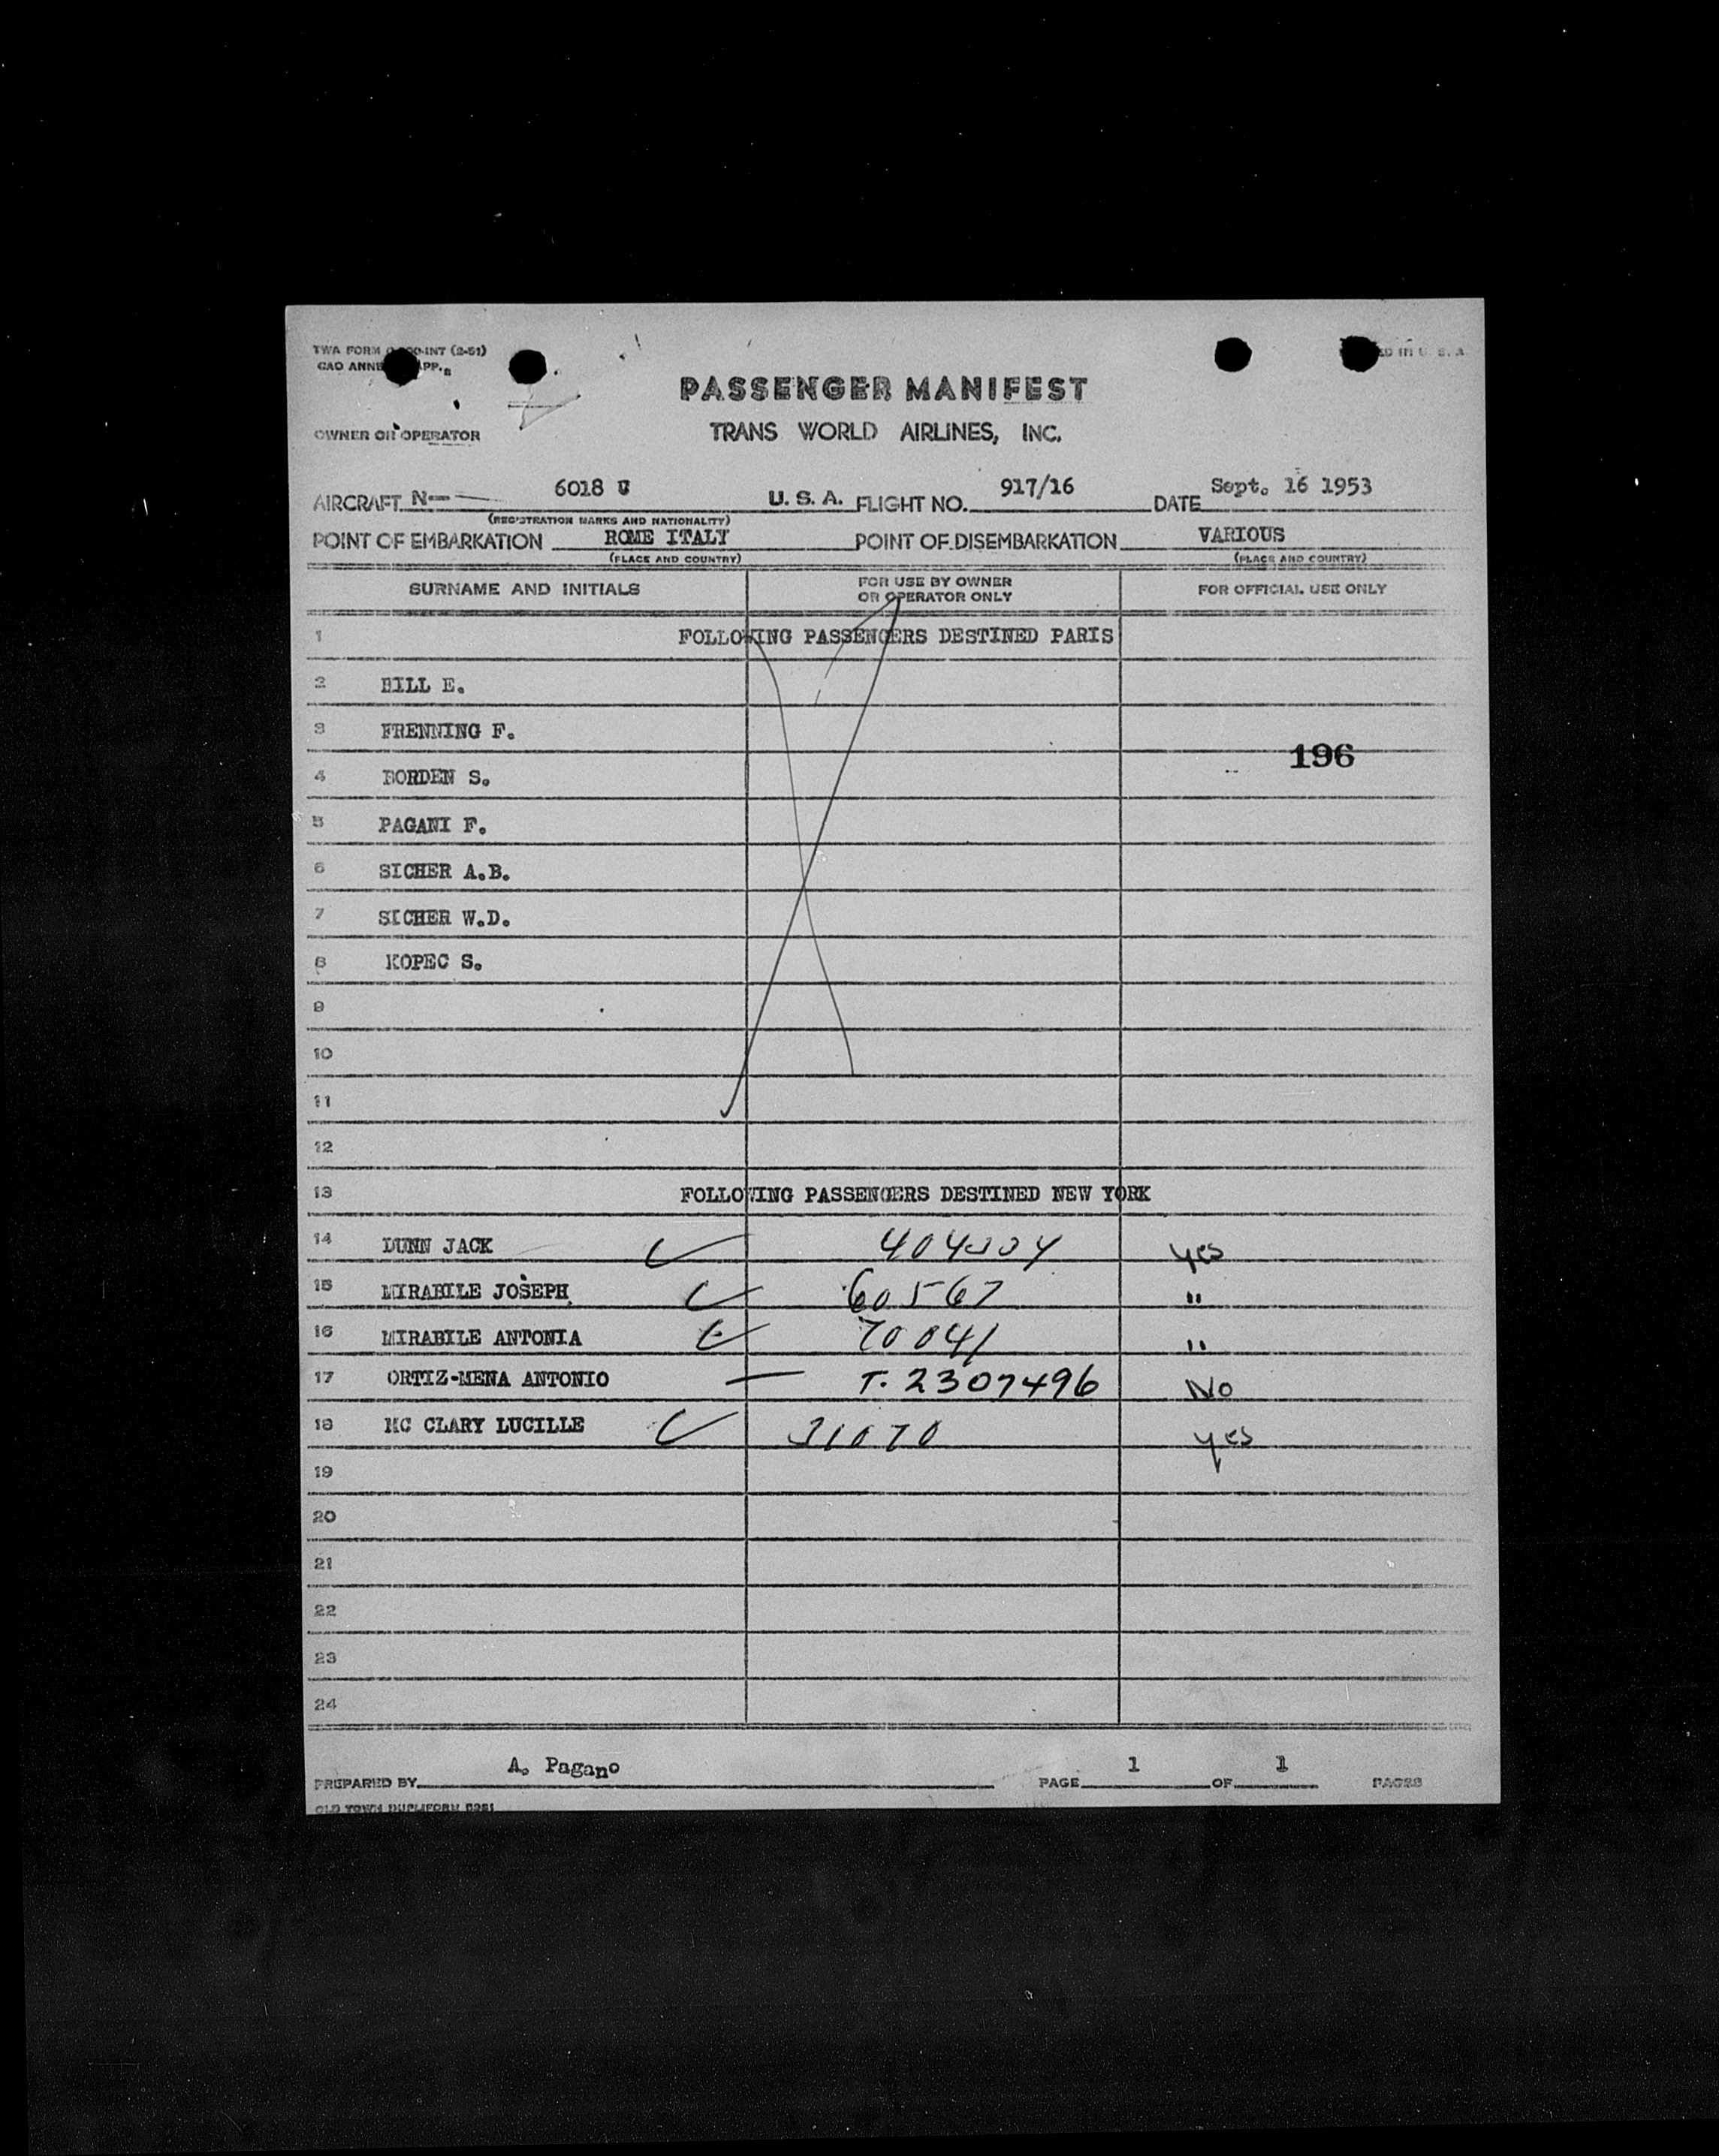 TWA FORM -INT (2-51)
CAO ANNE APP.
IN U. S. A.
PASSENGER MANIFEST
OWNER OR OPERATOR
TRANS WORLD AIRLINES, INC.
AIRCRAFT N— 6018 U. S. A. FLIGHT NO. 917/16 DATE Sept. 16 1953
(REGISTRATION MARKS AND NATIONALITY)
POINT OF EMBARKATION ROME ITALY POINT OF DISEMBARKATION VARIOUS
(PLACE AND COUNTRY) (PLACE AND COUNTRY)
SURNAME AND INITIALS FOR USE BY OWNER OR OPERATOR ONLY FOR OFFICIAL USE ONLY
1 FOLLOWING PASSENGERS DESTINED PARIS
2 E.
3 FRENNING F.
196
4 BORDEN S.
5 PAGANI F.
6 SICHER A.B.
7 SICHER W.D.
8 KOPEC S.
9
10
11
12
13 FOLLOWING PASSENGERS DESTINED NEW YORK
14 DUNN JACK yes
15 MIRABILE JOSEPH 60567 "
16 MIRABILE ANTONIA 70041 "
17 ORTIZ-MENA ANTONIO — T. 2307496 No
18 MC CLARY LUCILLE yes
19
20
21
22
23
24
PREPARED BY A. Pagano PAGE 1 OF 1 PAGES
OLD TOWN DUPLIFORM